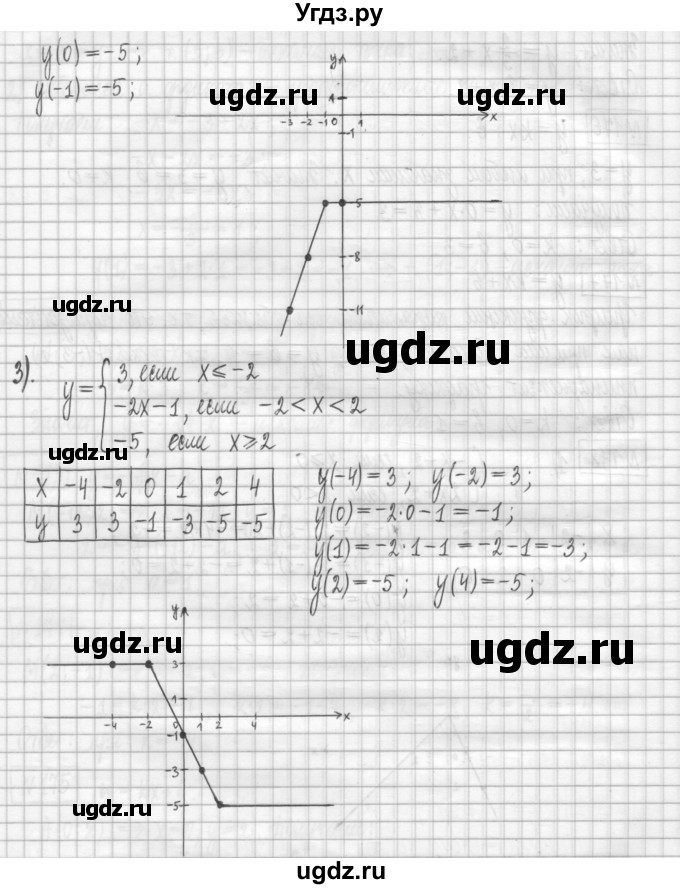 Угдз.ру
y(0) = -5 ;
y(-1) = -5 ;
ugdz.ru ugdz.ru
y
1
-3 -2 -1 0 1 x
-1
-5
-8
-11
ugdz.ru
ugdz.ru
3). y = { 3, если x ≤ -2
-2x-1, если -2 < x < 2
-5, если x ≥ 2
ugdz.ru
x -4 -2 0 1 2 4
y 3 3 -1 -3 -5 -5
y(-4) = 3 ; y(-2) = 3 ;
y(0) = -2·0 - 1 = -1 ;
y(1) = -2·1 - 1 = -2 - 1 = -3 ;
y(2) = -5 ; y(4) = -5 ;
y
ugdz.ru ugdz.ru
3
1
-4 -2 0 1 2 4 x
-1
-3
-5
ugdz.ru
ugdz.ru